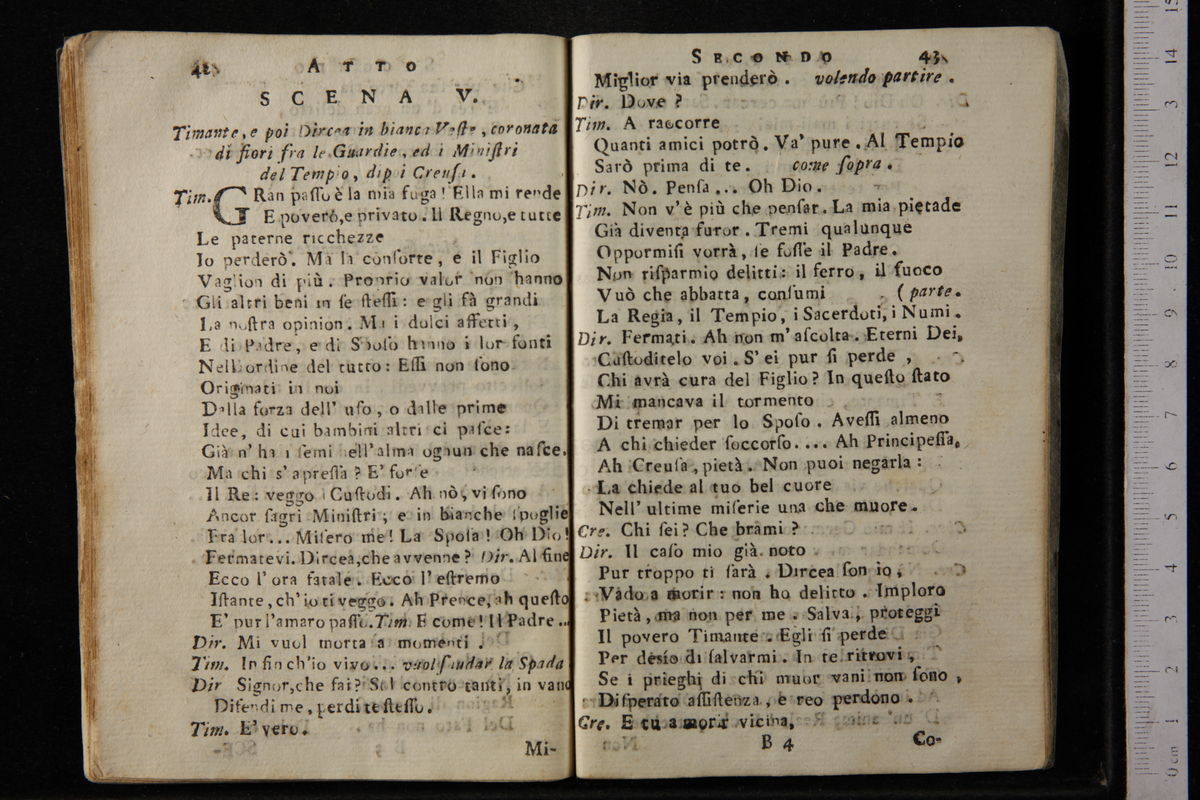 42
ATTO
SCENA V.
Timante, e poi Dircea in bianca Veste, coronata
di fiori fra le Guardie, ed i Miniſtri
del Tempio, dipoi Creuſa.
Tim. GRan paſſo è la mia fuga! Ella mi rende
E povero, e privato. Il Regno, e tutte
Le paterne ricchezze
Io perderò. Ma la conſorte, e il Figlio
Vaglion di più. Proprio valor non hanno
Gli altri beni in ſe ſteſſi: e gli fà grandi
La noſtra opinion. Ma i dolci affetti,
E di Padre, e di Spoſo hanno i lor fonti
Nell'ordine del tutto: Eſſi non ſono
Originati in noi
Dalla forza dell' uſo, o dalle prime
Idee, di cui bambini altri ci paſce:
Già n' ha i ſemi nell'alma ognun che naſce.
Ma chi s' apreſſa? E' forſe
Il Re: veggo i Cuſtodi. Ah nò, vi ſono
Ancor ſagri Miniſtri; e in bianche ſpoglie
Fra lor... Miſero me! La Spoſa! Oh Dio!
Fermatevi. Dircea, che avvenne? Dir. Al fine
Ecco l' ora fatale. Ecco l' eſtremo
Iſtante, ch' io ti veggo. Ah Prence, ah queſto
E' pur l'amaro paſſo. Tim. E come! Il Padre...
Dir. Mi vuol morta a momenti.
Tim. In fin ch'io vivo... vuol ſnudar la Spada
Dir Signor, che fai? Sol contro tanti, in vano
Difendi me, perdi te ſteſſo.
Tim. E' vero.
Mi-
SECONDO
43
Miglior via prenderò. volendo partire.
Dir. Dove?
Tim. A raccorre
Quanti amici potrò. Va' pure. Al Tempio
Sarò prima di te. come ſopra.
Dir. Nò. Penſa... Oh Dio.
Tim. Non v' è più che penſar. La mia pietade
Già diventa furor. Tremi qualunque
Oppormiſi vorrà, ſe foſſe il Padre.
Non riſparmio delitti: il ferro, il fuoco
Vuò che abbatta, conſumi (parte.
La Regia, il Tempio, i Sacerdoti, i Numi.
Dir. Fermati. Ah non m' aſcolta. Eterni Dei,
Cuſtoditelo voi. S' ei pur ſi perde,
Chi avrà cura del Figlio? In queſto ſtato
Mi mancava il tormento
Di tremar per lo Spoſo. Aveſſi almeno
A chi chieder ſoccorſo.... Ah Principeſſa,
Ah Creuſa, pietà. Non puoi negarla:
La chiede al tuo bel cuore
Nell' ultime miſerie una che muore.
Cre. Chi ſei? Che brami?
Dir. Il caſo mio già noto
Pur troppo ti ſarà. Dircea ſon io,
Vado a morir: non ho delitto. Imploro
Pietà, ma non per me. Salva, proteggi
Il povero Timante. Egli ſi perde
Per desìo di ſalvarmi. In te ritrovi,
Se i prieghi di chi muor vani non ſono,
Diſperato aſſiſtenza, e reo perdono.
Cre. E tu a morir vicina,
B 4
Co-